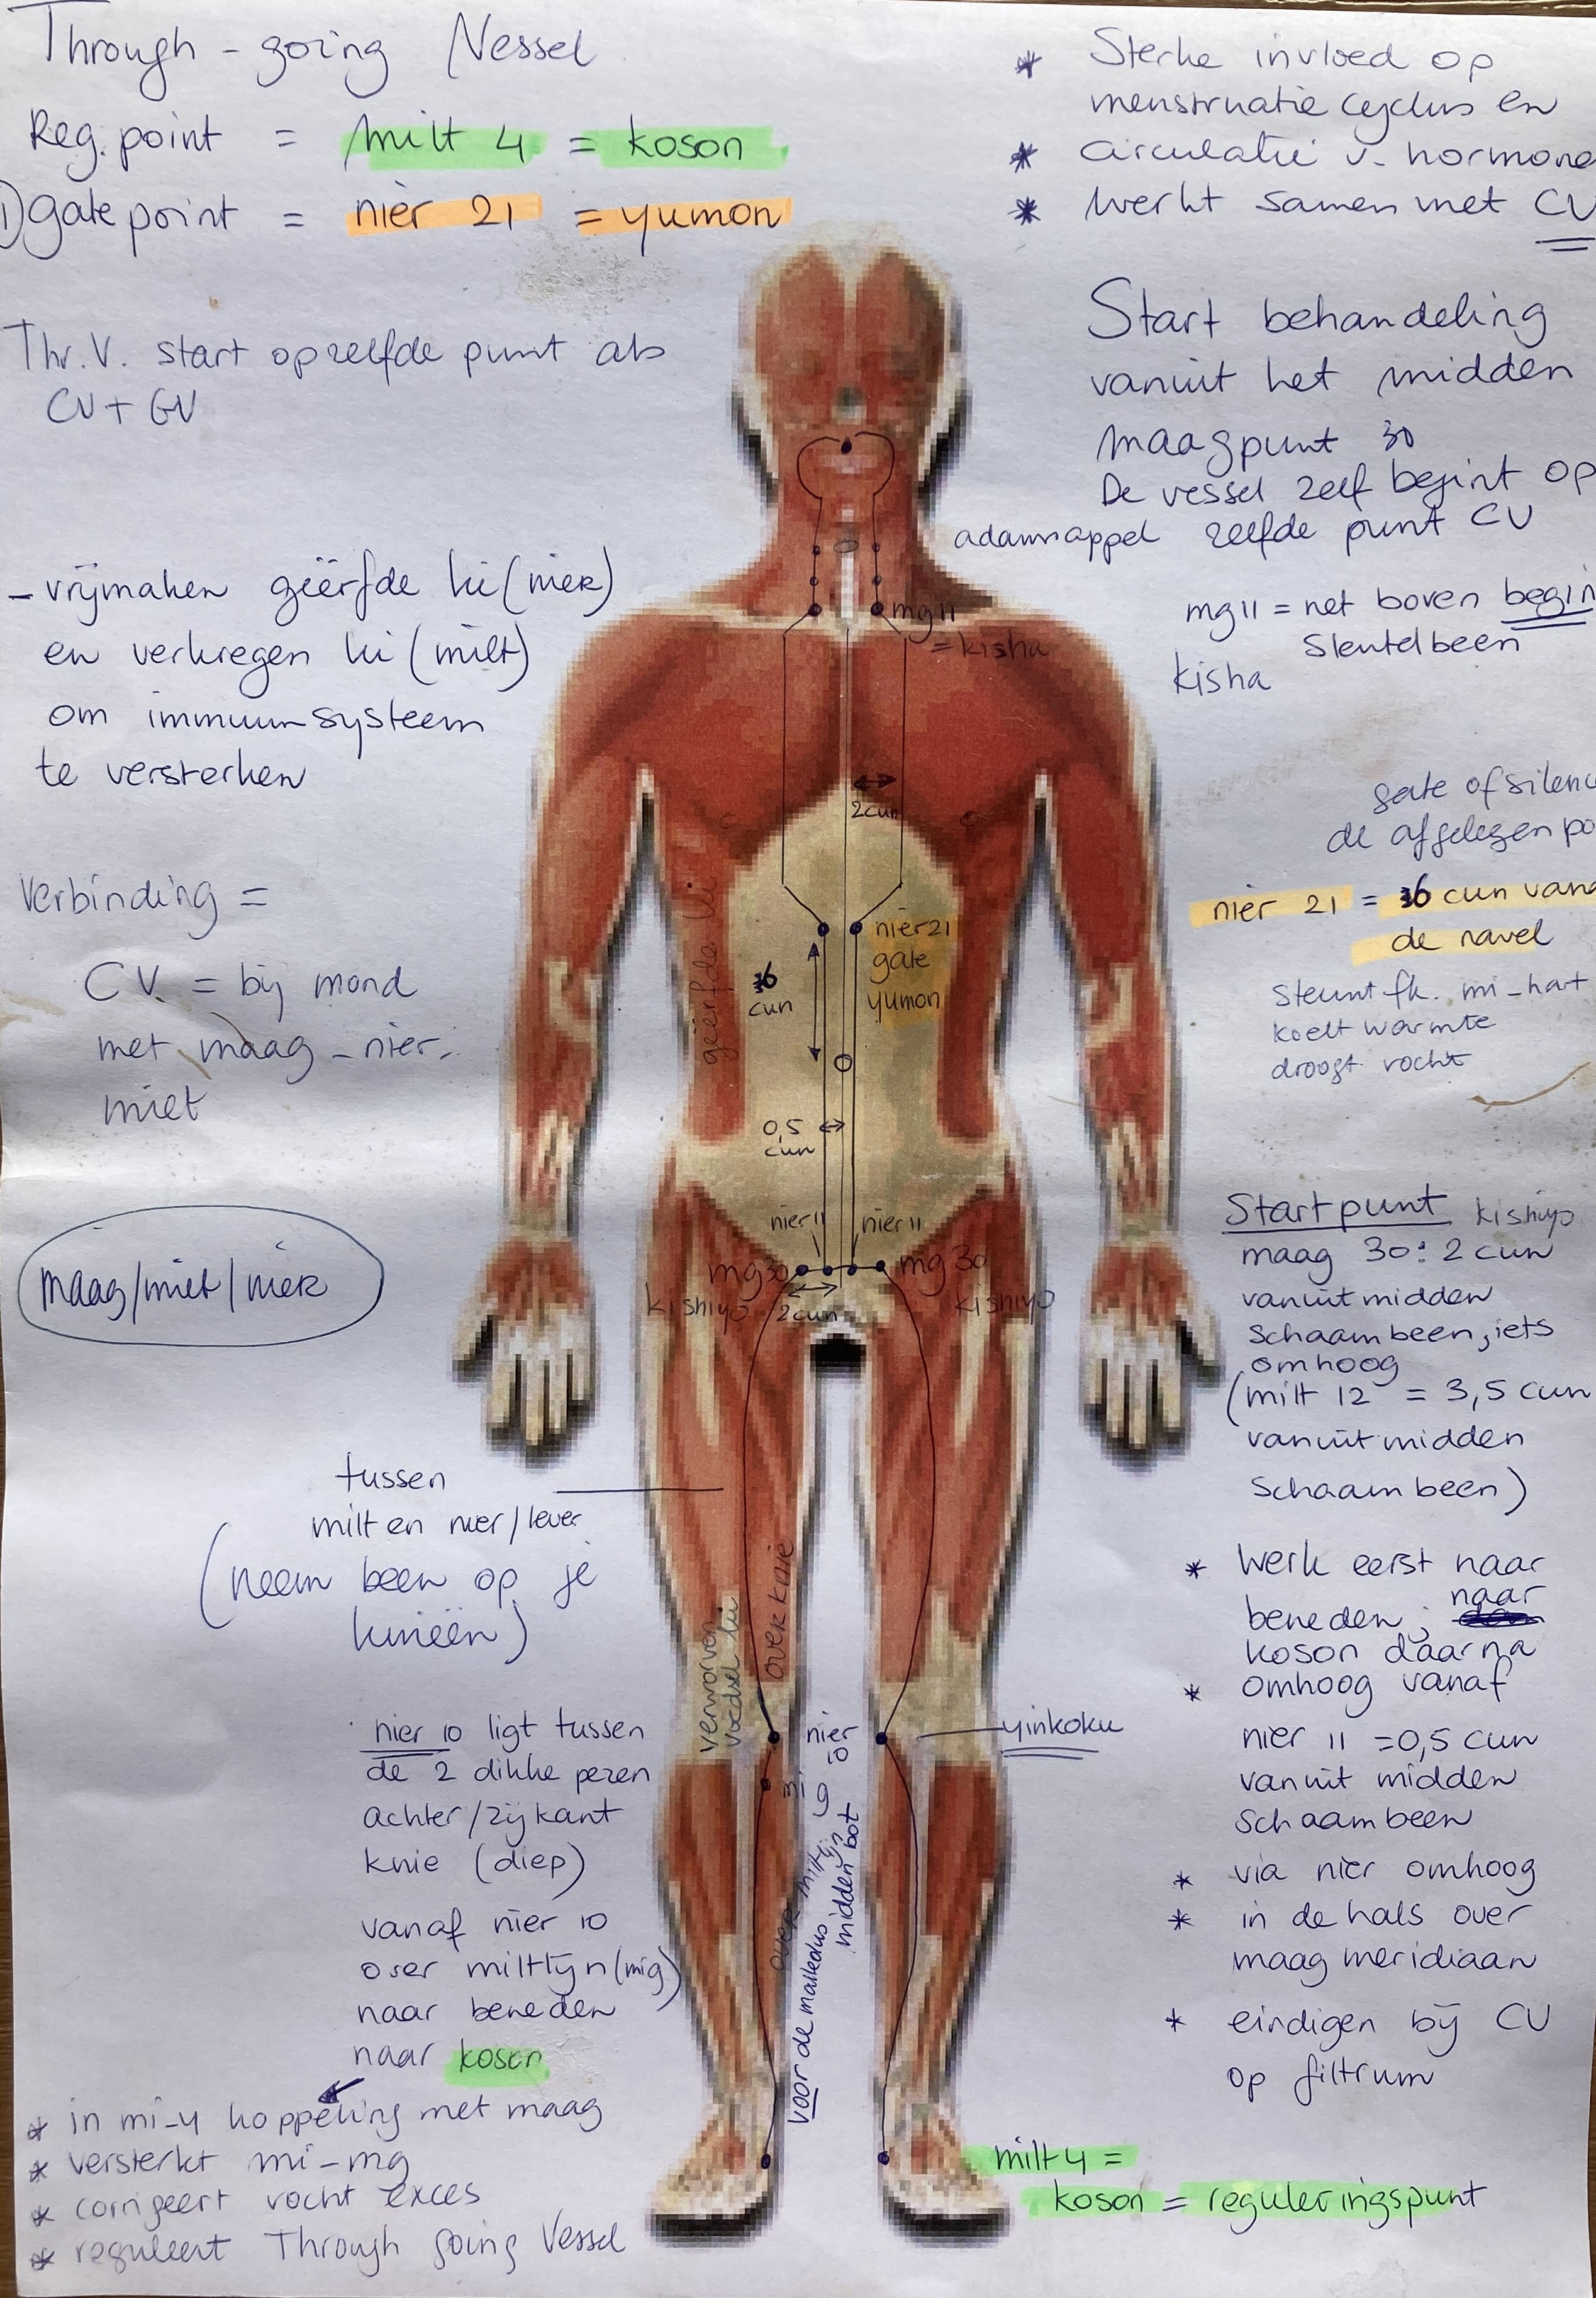 Through-going Vessel
Reg. point = milt 4 = koson
1) gate point = nier 21 = yumon
Thr. V. start op zelfde punt als
CV + GV
- vrijmaken geërfde ki (nier)
en verkregen ki (milt)
om immuunsysteem
te versterken
Verbinding =
CV. = bij mond
met maag - nier.
milt
maag/milt/nier
tussen
milt en nier/lever
(neem been op je
knieën)
nier 10 ligt tussen
de 2 dikke pezen
achter/zijkant
knie (diep)
vanaf nier 10
over miltlijn (mig)
naar beneden
naar koson
* in mi-4 koppeling met maag
* versterkt mi-mg
* corrigeert vocht exces
* reguleert Through going Vessel
* Sterke invloed op
menstruatie cyclus en
* circulatie v. hormone
* Werkt samen met CV
Start behandeling
vanuit het midden
maagpunt 30
De vessel zelf begint op
adamsappel zelfde punt CV
mg 11 = net boven begin
Sleutelbeen
kisha
gate of silenc
de afgelegen po
nier 21 = 6 cun vana
de navel
Steunt fk. mi-hart
koelt warmte
droogt vocht
Startpunt kishiyo
maag 30: 2 cun
vanuit midden
schaambeen, iets
omhoog
(milt 12 = 3,5 cun
vanuit midden
Schaambeen)
* Werk eerst naar
beneden; naar
koson daarna
* omhoog vanaf
nier 11 = 0,5 cun
vanuit midden
schaambeen
* via nier omhoog
* in de hals over
maag meridiaan
* eindigen bij CV
op filtrum
milt 4 =
koson = reguleringspunt
mg 11
= kisha
2 cun
geërfde ki
nier 21
gate
yumon
6
cun
0,5
cun
nier 11
nier 11
mg 30
mg 30
kishiyo
kishiyo
2 cun
over knie
verworven
voedsel ki
nier
10
yinkoku
over miltlijn
midden bot
voor de malleolus